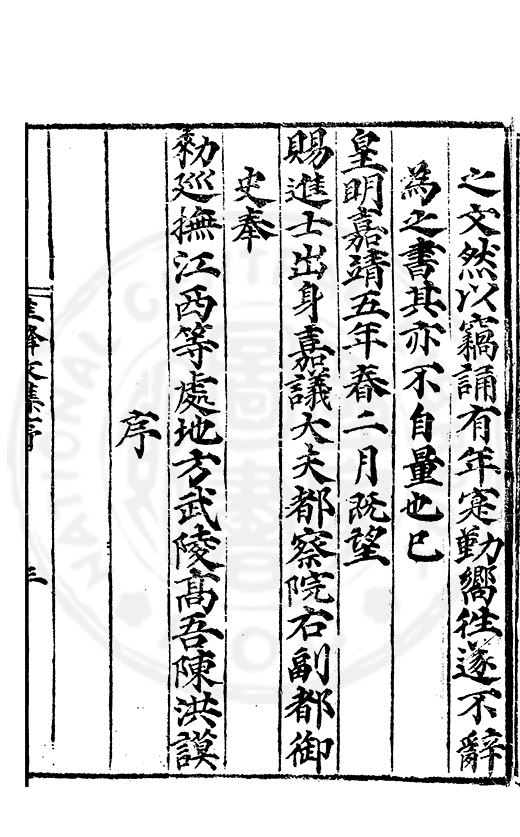 之文然以竊誦有年寔勤嚮徃遂不辭
為之書其亦不自量也已
皇明嘉靖五年春二月既望
賜進士出身嘉議大夫都察院右副都御
史奉
勑廵撫江西等處地方武陵高吾陳洪謨
序
文集序
三